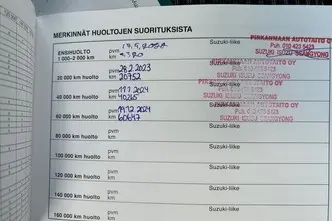 MERKINNÄT HUOLTOJEN SUORITUKSISTA
ENSIHUOLTO pvm Suzuki-liike
1 000–2 000 km km
PIRKANMAAN AUTOTAITO OY
Puh. 010 423 5423
SUZUKI ISUZU SSANGYONG
20 000 km huolto pvm 28.2.2023 Suzuki-liike
km 20752
PIRKANMAAN AUTOTAITO OY
Puh. 010 423 5423
SUZUKI ISUZU SSANGYONG
40 000 km huolto pvm Suzuki-liike
km 40265
PIRKANMAAN AUTOTAITO OY
SUZUKI ISUZU SSANGYONG
60 000 km huolto pvm 19.12.2024 Suzuki-liike
km 60647
PIRKANMAAN AUTOTAITO OY
SUZUKI ISUZU SSANGYONG
80 000 km huolto pvm Suzuki-liike
km
100 000 km huolto pvm Suzuki-liike
km
120 000 km huolto pvm Suzuki-liike
km
140 000 km huolto pvm Suzuki-liike
km
160 000 km pvm Suzuki-liike